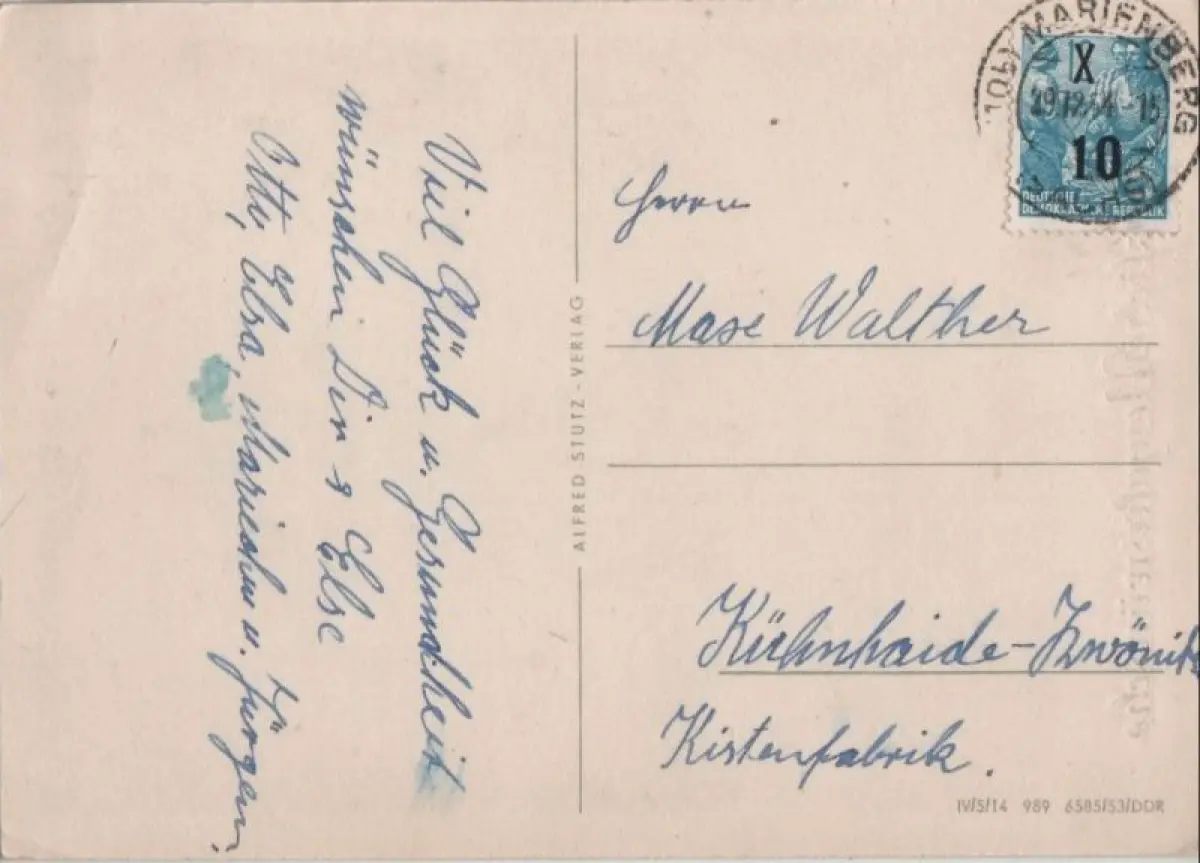 Viel Glück u. Gesundheit
wünschen Dir & Else
Otto, Elsa, Mariechen u. Jürgen.
ALFRED STUTZ - VERLAG
MARIENBERG
29.12.54-15
X
10
DEUTSCHE
DEMOKRATISCHE REPUBLIK
Herrn
Max Walther
Kühnhaide-Zwönitz
Kistenfabrik.
IV/5/14 989 6585/53/DDR